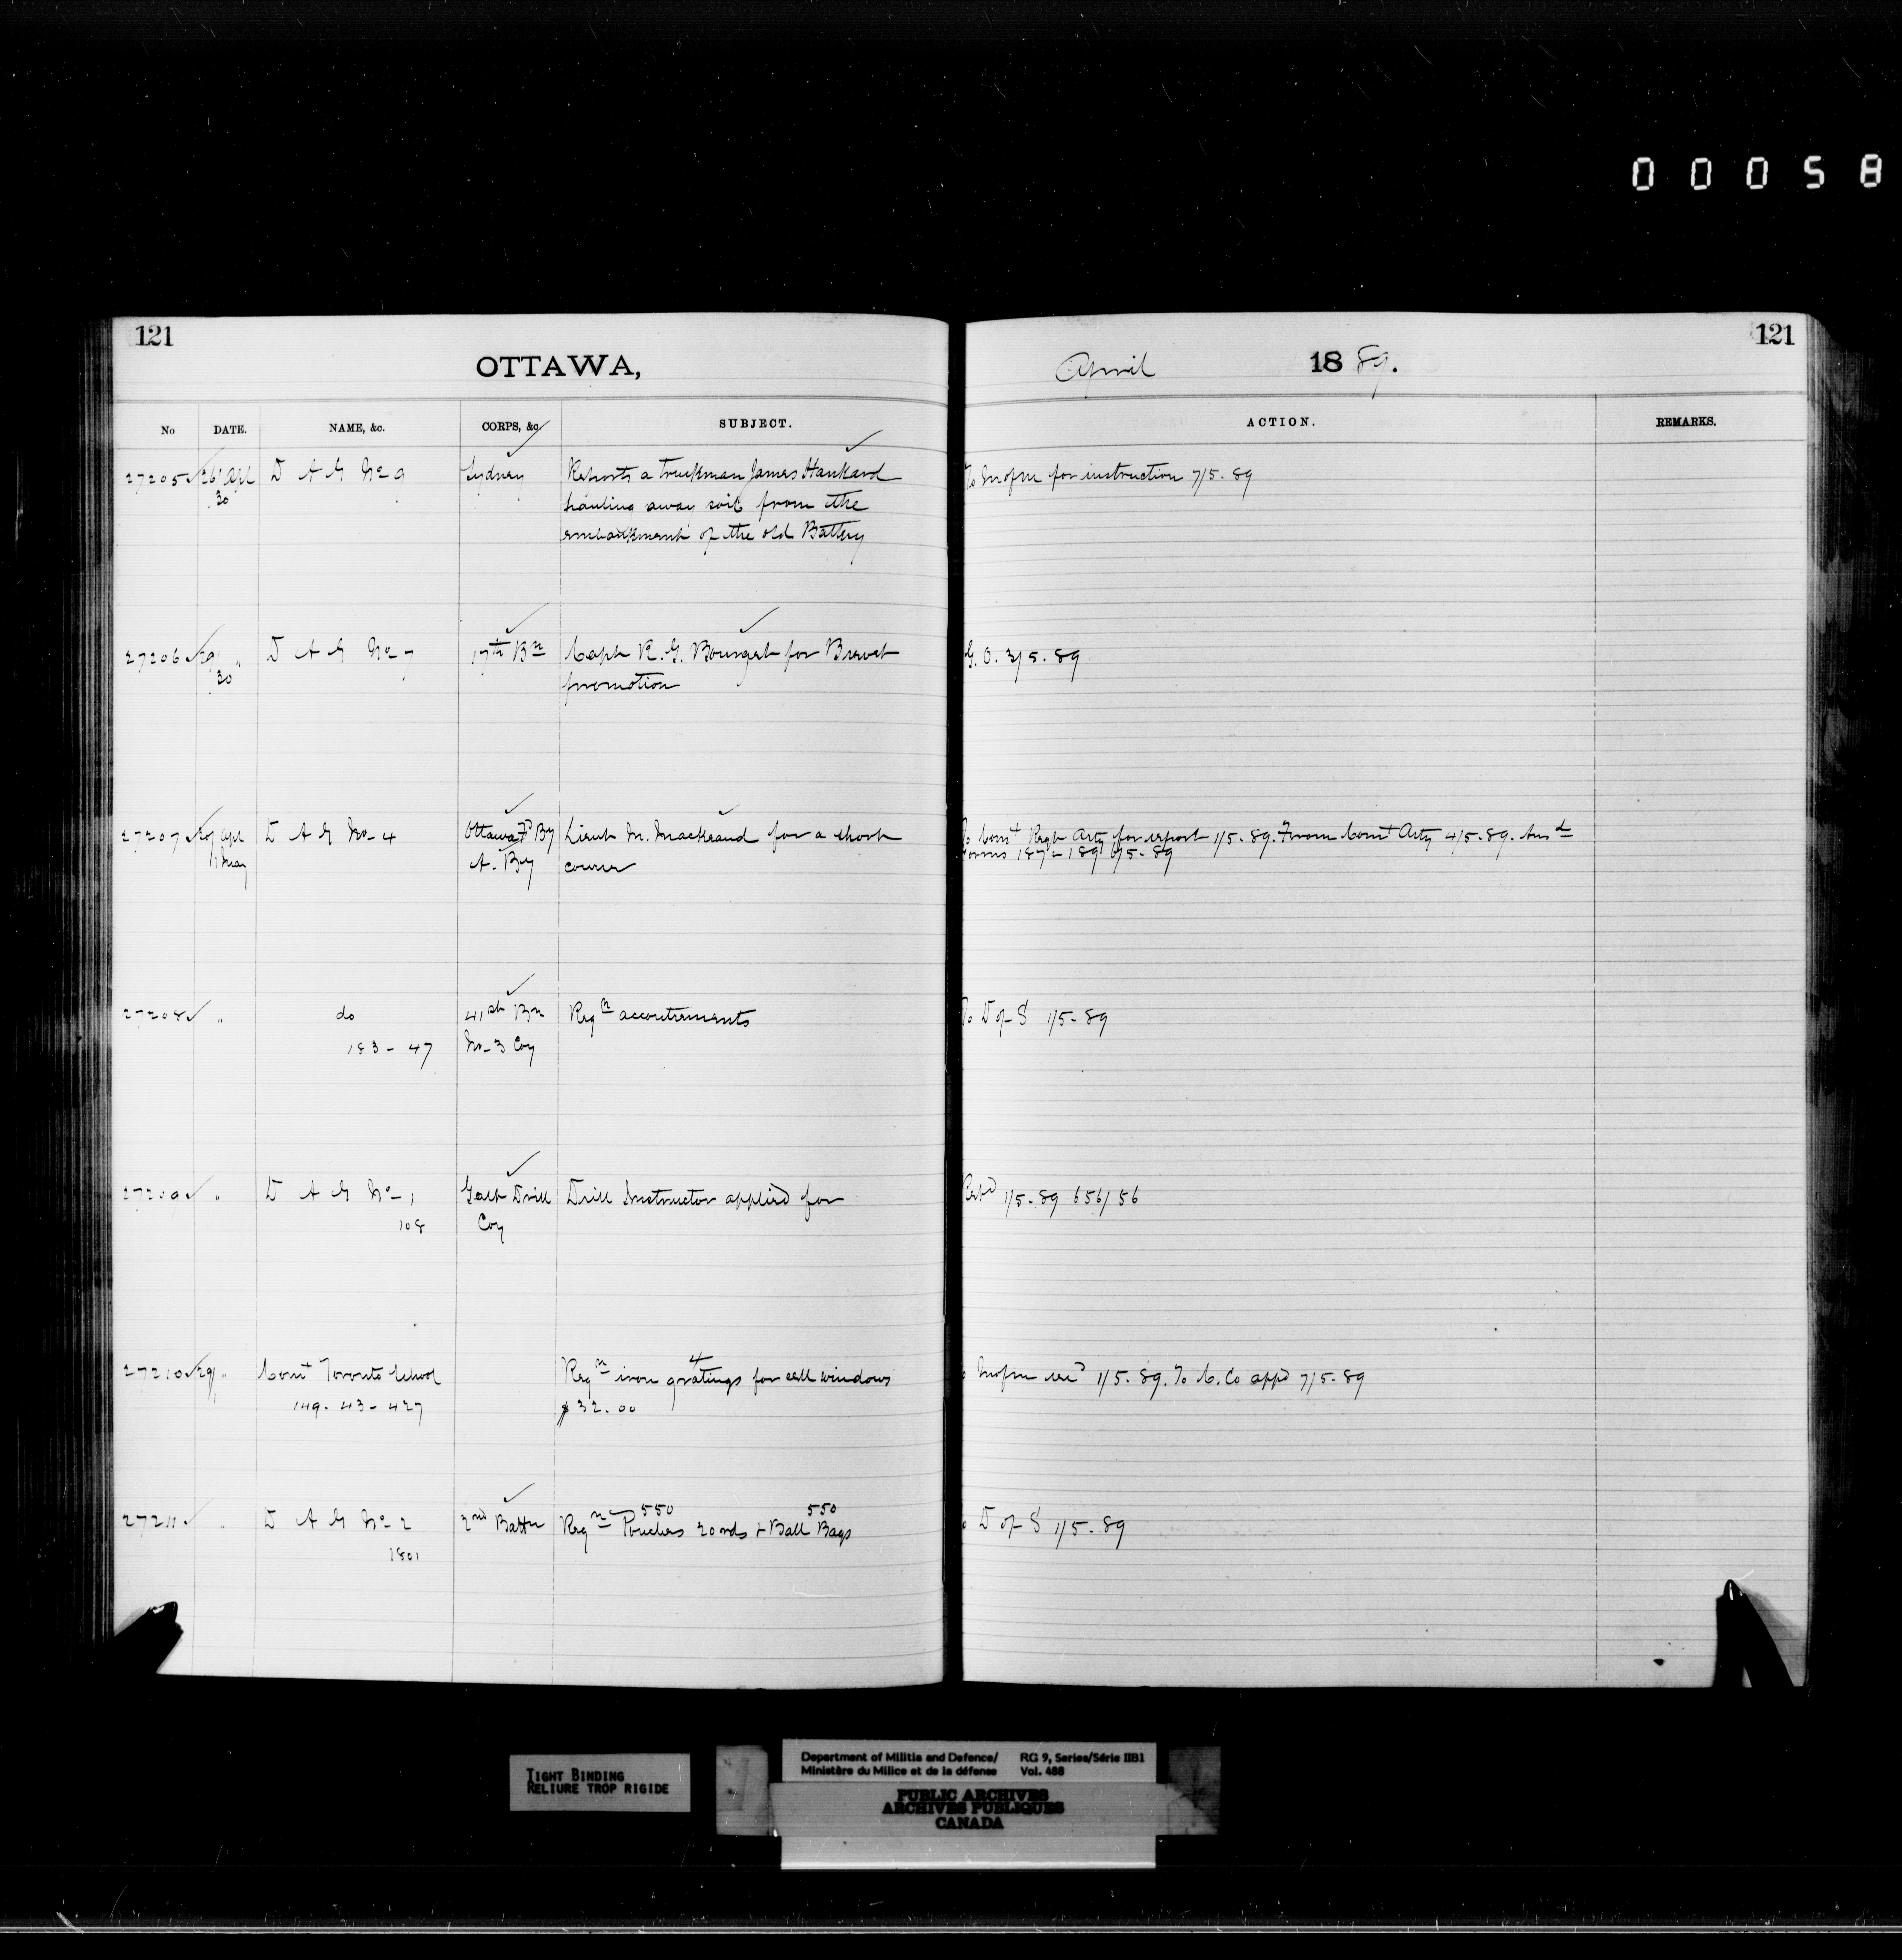 00058
121
121
OTTAWA,
April 1889.
No DATE. NAME, &c. CORPS, &c SUBJECT. ACTION. REMARKS.
27205 26 Apl D A G No 9 Sydney Reports a truckman James Hankard To for instruction 7/5.89
30 hauling away soil from the
embankment of the old Battery
27206 29 " D A G No 7 17th Bn Capt R. G. Bourget for Brevet G. O. 3/5.89
30 promotion
27207 Apl D A G No 4 Ottawa Fd By Lieut for a short Comt Regt Arty for report 1/5.89. From Comt Arty 4/5.89. Ansd
1 May A. By course Forms 6/5.89
27208 " do 41st Bn Reqn accoutrements To D of S 1/5.89
183 - 47 No 3 Coy
27209 " D A G No 1 Galt Drill Drill Instructor applied for 1/5.89 656/56
108 Coy
27210 29 " Comt Toronto School Reqn 4 iron gratings for cell windows 1/5.89. To appd 7/5.89
149. 43 - 427 $32.00
27211 " D A G No 2 2nd Battn Reqn 550 Pouches 20 rds + 550 Ball Bags D of S 1/5.89
1801
TIGHT BINDING
RELIURE TROP RIGIDE
Department of Militia and Defence/ RG 9, Series/Série IIB1
Ministère du Milice et de la défense Vol. 488
PUBLIC ARCHIVES
ARCHIVES PUBLIQUES
CANADA